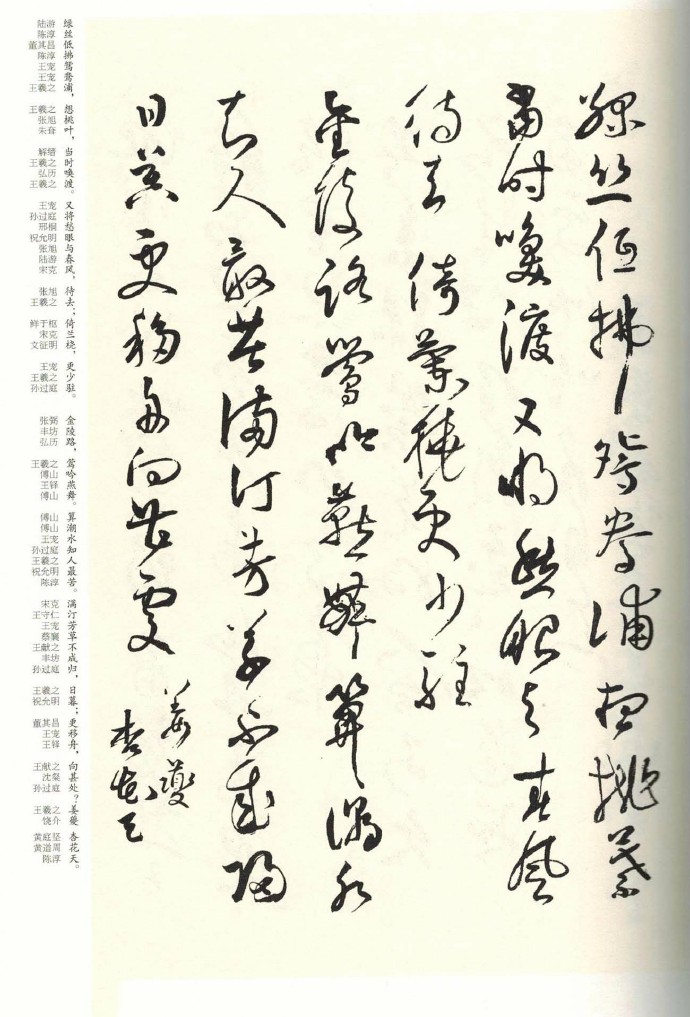 綠絲低拂鴛鴦浦想桃葉
當時喚渡又將愁眼與春風
待去倚蘭橈更少駐
金陵路鶯吟燕舞算潮水
知人最苦滿汀芳草不成歸
日暮更移舟向甚處
姜夔
杏花天
陆游 绿
陈淳 丝
董其昌 低
陈淳 拂
王宠 鸳
王宠 鸯
王羲之 浦，
王羲之 想
张旭 桃
朱耷 叶，
解缙 当
王羲之 时
弘历 唤
王羲之 渡。
王宠 又
孙过庭 将
邢侗 愁
祝允明 眼
张旭 与
陆游 春
宋克 风，
张旭 待
王羲之 去；
鲜于枢 倚
宋克 兰
文征明 桡，
王宠 更
王羲之 少
孙过庭 驻。
张弼 金
丰坊 陵
弘历 路，
王羲之 莺
傅山 吟
王铎 燕
傅山 舞。
傅山 算
傅山 潮
王宠 水
孙过庭 知
王羲之 人
祝允明 最
陈淳 苦。
宋克 满
王守仁 汀
王宠 芳
蔡襄 草
王献之 不
丰坊 成
孙过庭 归，
王羲之 日
祝允明 暮；
董其昌 更
王宠 移
王铎 舟，
王献之 向
沈粲 甚
孙过庭 处？
王羲之 姜
饶介 夔
黄庭坚 杏
黄道周 花
陈淳 天。